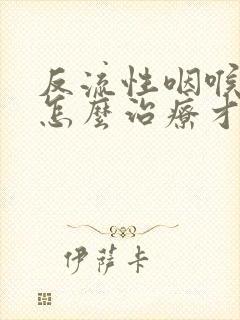 反流性咽喉
怎麼治療才
伊薩卡